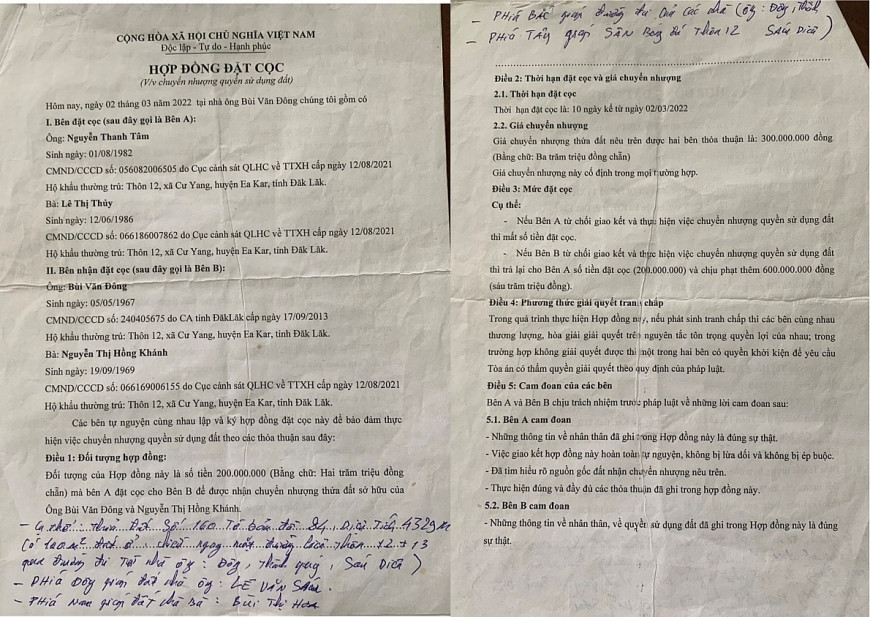 CỘNG HÒA XÃ HỘI CHỦ NGHĨA VIỆT NAM
Độc lập - Tự do - Hạnh phúc
HỢP ĐỒNG ĐẶT CỌC
(V/v chuyển nhượng quyền sử dụng đất)
Hôm nay, ngày 02 tháng 03 năm 2022 tại nhà ông Bùi Văn Đông chúng tôi gồm có
I. Bên đặt cọc (sau đây gọi là Bên A):
Ông: Nguyễn Thanh Tâm
Sinh ngày: 01/08/1982
CMND/CCCD số: 056082006505 do Cục cảnh sát QLHC về TTXH cấp ngày 12/08/2021
Hộ khẩu thường trú: Thôn 12, xã Cư Yang, huyện Ea Kar, tỉnh Đăk Lăk.
Bà: Lê Thị Thủy
Sinh ngày: 12/06/1986
CMND/CCCD số: 066186007862 do Cục cảnh sát QLHC về TTXH cấp ngày 12/08/2021
Hộ khẩu thường trú: Thôn 12, xã Cư Yang, huyện Ea Kar, tỉnh Đăk Lăk.
II. Bên nhận đặt cọc (sau đây gọi là Bên B):
Ông: Bùi Văn Đông
Sinh ngày: 05/05/1967
CMND/CCCD số: 240405675 do CA tỉnh ĐăkLăk cấp ngày 17/09/2013
Hộ khẩu thường trú: Thôn 12, xã Cư Yang, huyện Ea Kar, tỉnh Đăk Lăk.
Bà: Nguyễn Thị Hồng Khánh
Sinh ngày: 19/09/1969
CMND/CCCD số: 066169006155 do Cục cảnh sát QLHC về TTXH cấp ngày 12/08/2021
Hộ khẩu thường trú: Thôn 12, xã Cư Yang, huyện Ea Kar, tỉnh Đăk Lăk.
Các bên tự nguyện cùng nhau lập và ký hợp đồng đặt cọc này để bảo đảm thực
hiện việc chuyển nhượng quyền sử dụng đất theo các thỏa thuận sau đây:
Điều 1: Đối tượng hợp đồng:
Đối tượng của Hợp đồng này là số tiền 200.000.000 (Bằng chữ: Hai trăm triệu đồng
chẵn) mà bên A đặt cọc cho Bên B để được nhận chuyển nhượng thửa đất sở hữu của
Ông Bùi Văn Đông và Nguyễn Thị Hồng Khánh.
- Cụ thể: Thửa Đất Số 160 Tờ bản đồ 84, Diện Tích 4329 m
Có 100m đất ở, đường Thôn 12 + 13
đường đi nhà ông: Đông, Thành
- Phía Đông giáp đất nhà ông: LÊ VĂN SÁU.
- Phía Nam giáp ĐẤT nhà Bà: BÙI THỊ HOA
- PHÍA BẮC giáp đường đi Của Các nhà (ông: Đông, Thành
- PHÍA TÂY giáp SÂN Bóng đá Thôn 12
Điều 2: Thời hạn đặt cọc và giá chuyển nhượng
2.1. Thời hạn đặt cọc
Thời hạn đặt cọc là: 10 ngày kể từ ngày 02/03/2022
2.2. Giá chuyển nhượng
Giá chuyển nhượng thửa đất nêu trên được hai bên thỏa thuận là: 300.000.000 đồng
(Bằng chữ: Ba trăm triệu đồng chẵn)
Giá chuyển nhượng này cố định trong mọi trường hợp.
Điều 3: Mức đặt cọc
Cụ thể:
- Nếu Bên A từ chối giao kết và thực hiện việc chuyển nhượng quyền sử dụng đất
thì mất số tiền đặt cọc.
- Nếu Bên B từ chối giao kết và thực hiện việc chuyển nhượng quyền sử dụng đất
thì trả lại cho Bên A số tiền đặt cọc (200.000.000) và chịu phạt thêm 600.000.000 đồng
(sáu trăm triệu đồng).
Điều 4: Phương thức giải quyết tranh chấp
Trong quá trình thực hiện Hợp đồng này, nếu phát sinh tranh chấp thì các bên cùng nhau
thương lượng, hòa giải giải quyết trên nguyên tắc tôn trọng quyền lợi của nhau; trong
trường hợp không giải quyết được thì một trong hai bên có quyền khởi kiện để yêu cầu
Tòa án có thẩm quyền giải quyết theo quy định của pháp luật.
Điều 5: Cam đoan của các bên
Bên A và Bên B chịu trách nhiệm trước pháp luật về những lời cam đoan sau:
5.1. Bên A cam đoan
- Những thông tin về nhân thân đã ghi trong Hợp đồng này là đúng sự thật.
- Việc giao kết hợp đồng này hoàn toàn tự nguyện, không bị lừa dối và không bị ép buộc.
- Đã tìm hiểu rõ nguồn gốc đất nhận chuyển nhượng nêu trên.
- Thực hiện đúng và đầy đủ các thỏa thuận đã ghi trong hợp đồng này.
5.2. Bên B cam đoan
- Những thông tin về nhân thân, về quyền sử dụng đất đã ghi trong Hợp đồng này là đúng
sự thật.